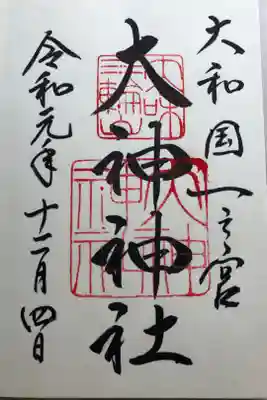 大和国一之宮
大神神社
令和元年十二月四日